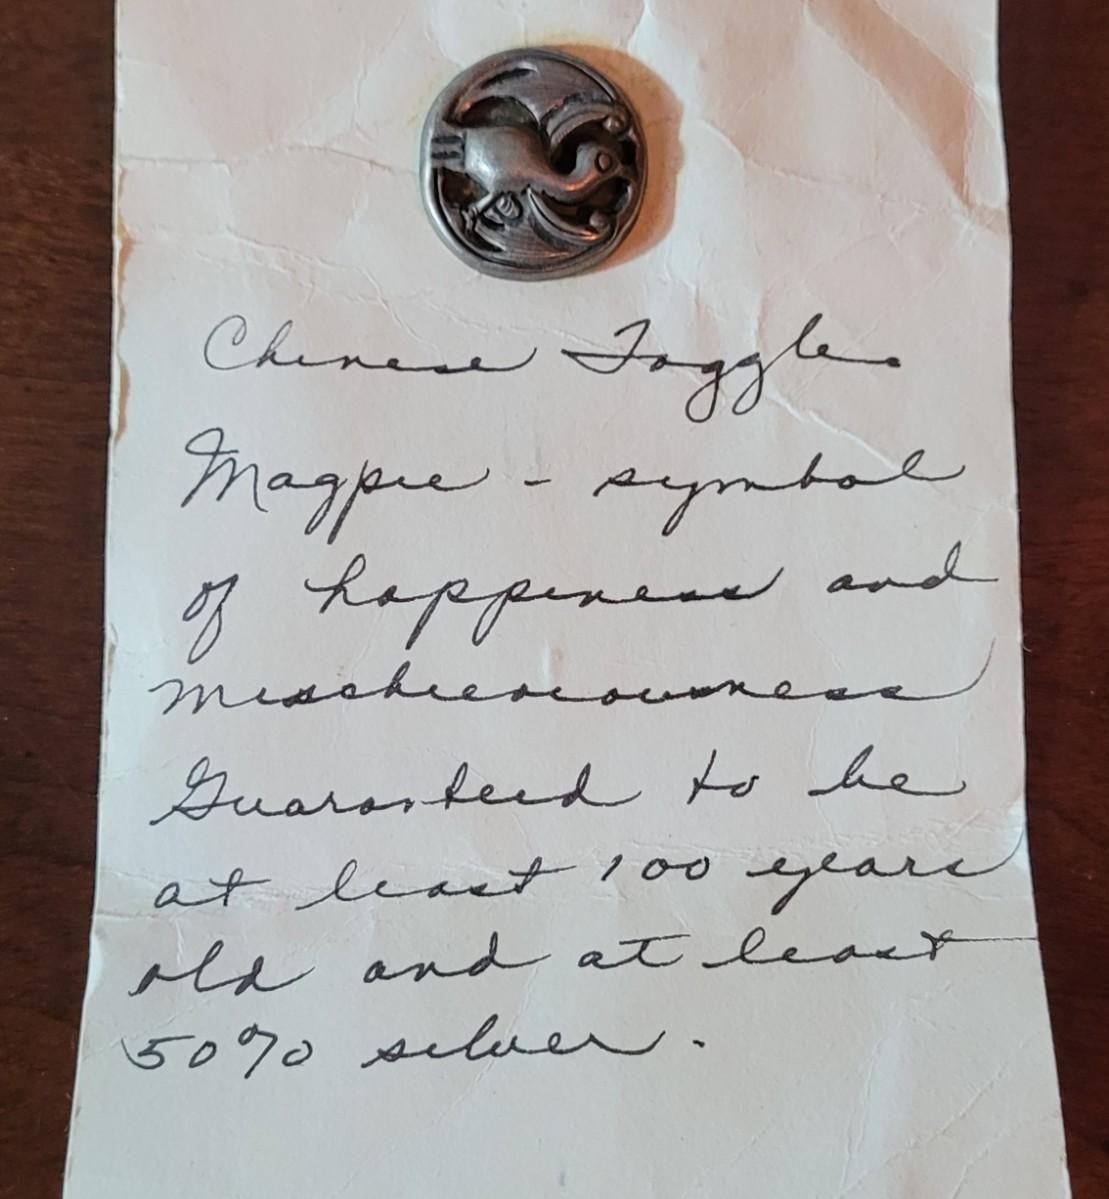 Chinese Toggle.
Magpie - symbol
of happiness and
mischieviousness
Guaranteed to be
at least 100 years
old and at least
50% silver.